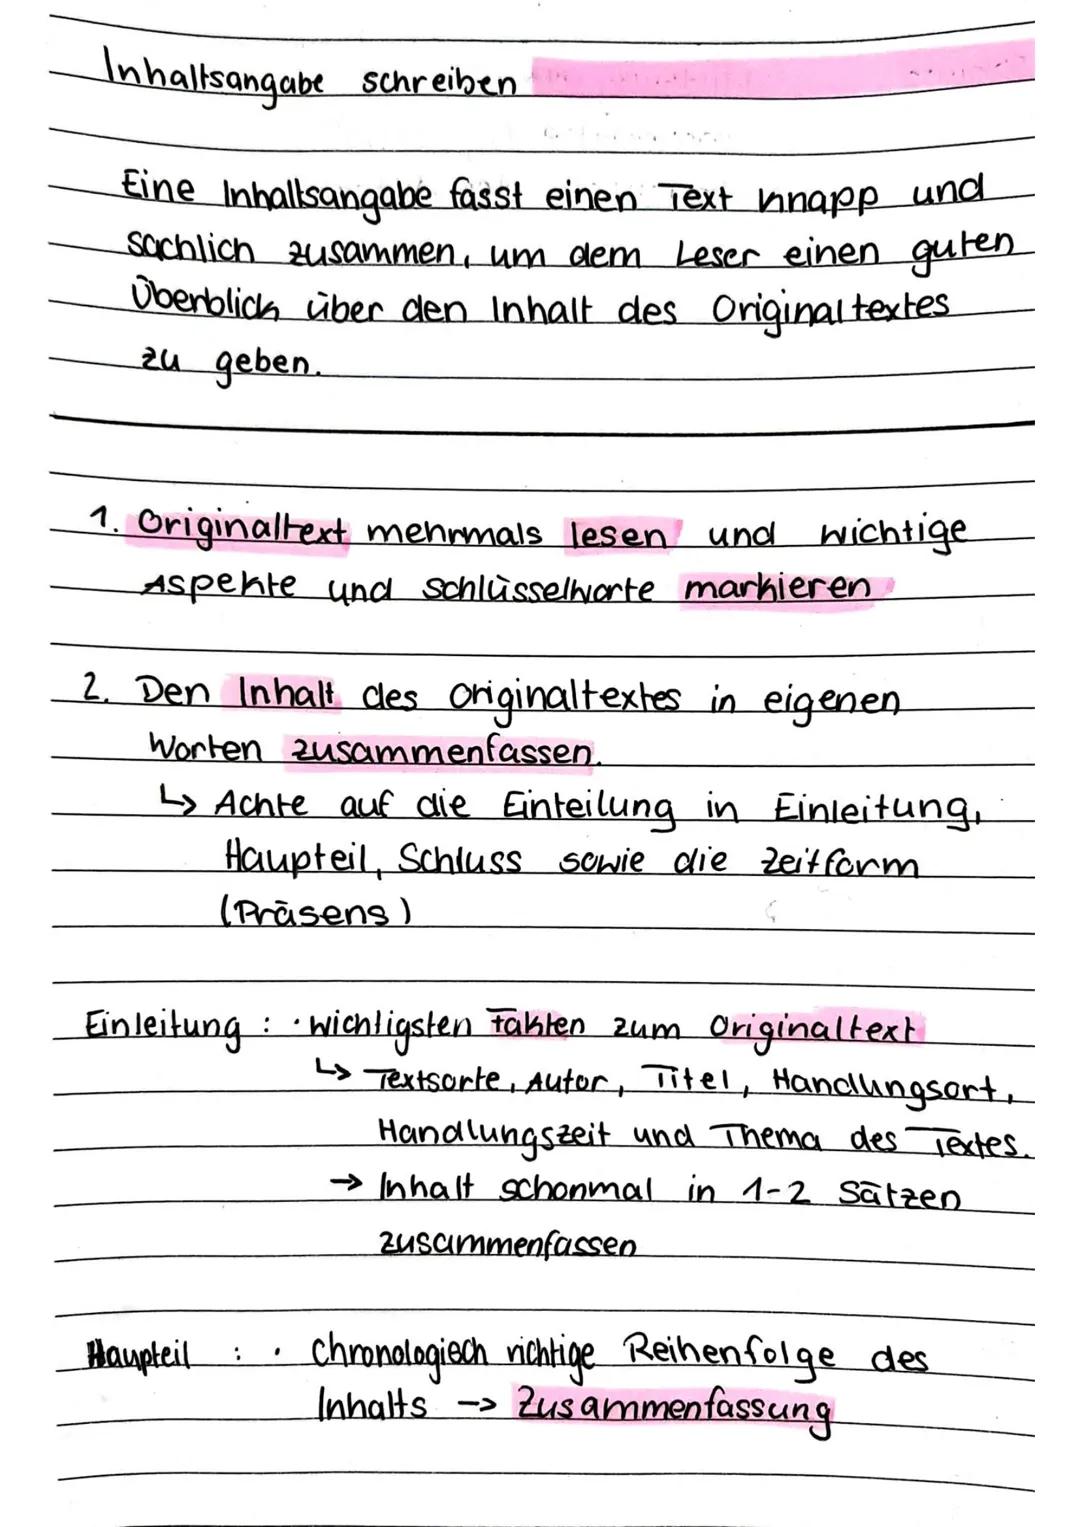 Inhaltsangabe schreiben
Eine Inhaltsangabe fasst einen Text knapp und
sachlich zusammen, um dem Leser einen guten
Überblick über den Inhalt des Originaltextes
zu geben.
1. Originaltext mehrmals lesen und wichtige
Aspekte und Schlüsselworte markieren
2. Den Inhalt des Originaltextes in eigenen
Worten zusammenfassen.
↳ Achte auf die Einteilung in Einleitung,
Haupteil, Schluss sowie die Zeitform
(Präsens)
Einleitung : · wichtigsten Fakten zum Originaltext
↳ Textsorte, Autor, Titel, Handlungsort,
Handlungszeit und Thema des Textes.
→ Inhalt schonmal in 1-2 Sätzen
zusammenfassen
Haupteil : · Chronologisch richtige Reihenfolge des
Inhalts → Zusammenfassung